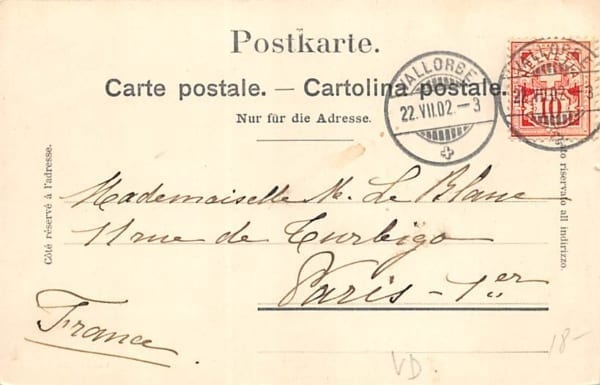 Postkarte.
Carte postale. — Cartolina postale.
Nur für die Adresse.
VALLORBE
22.VII.02.-3
VALLORBE
22.VII.02.-3
HELVETIA
10
Côté réservé à l'adresse.
Lato riservato all indirizzo.
Mademoiselle M. Le Blanc
11 rue de Turbigo
Paris - 1er
France
VD.
18-